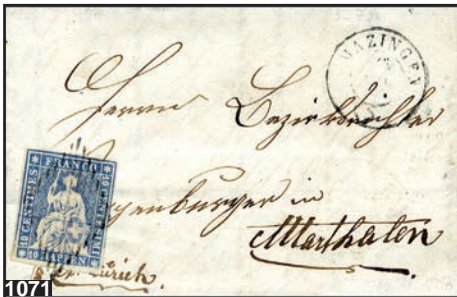 MAZINGEN
Herrn Bezirksrichter
genburger in
Marthalen
FRANCO
10 CENTIMES
10 RAPPEN
Zürich.
1071